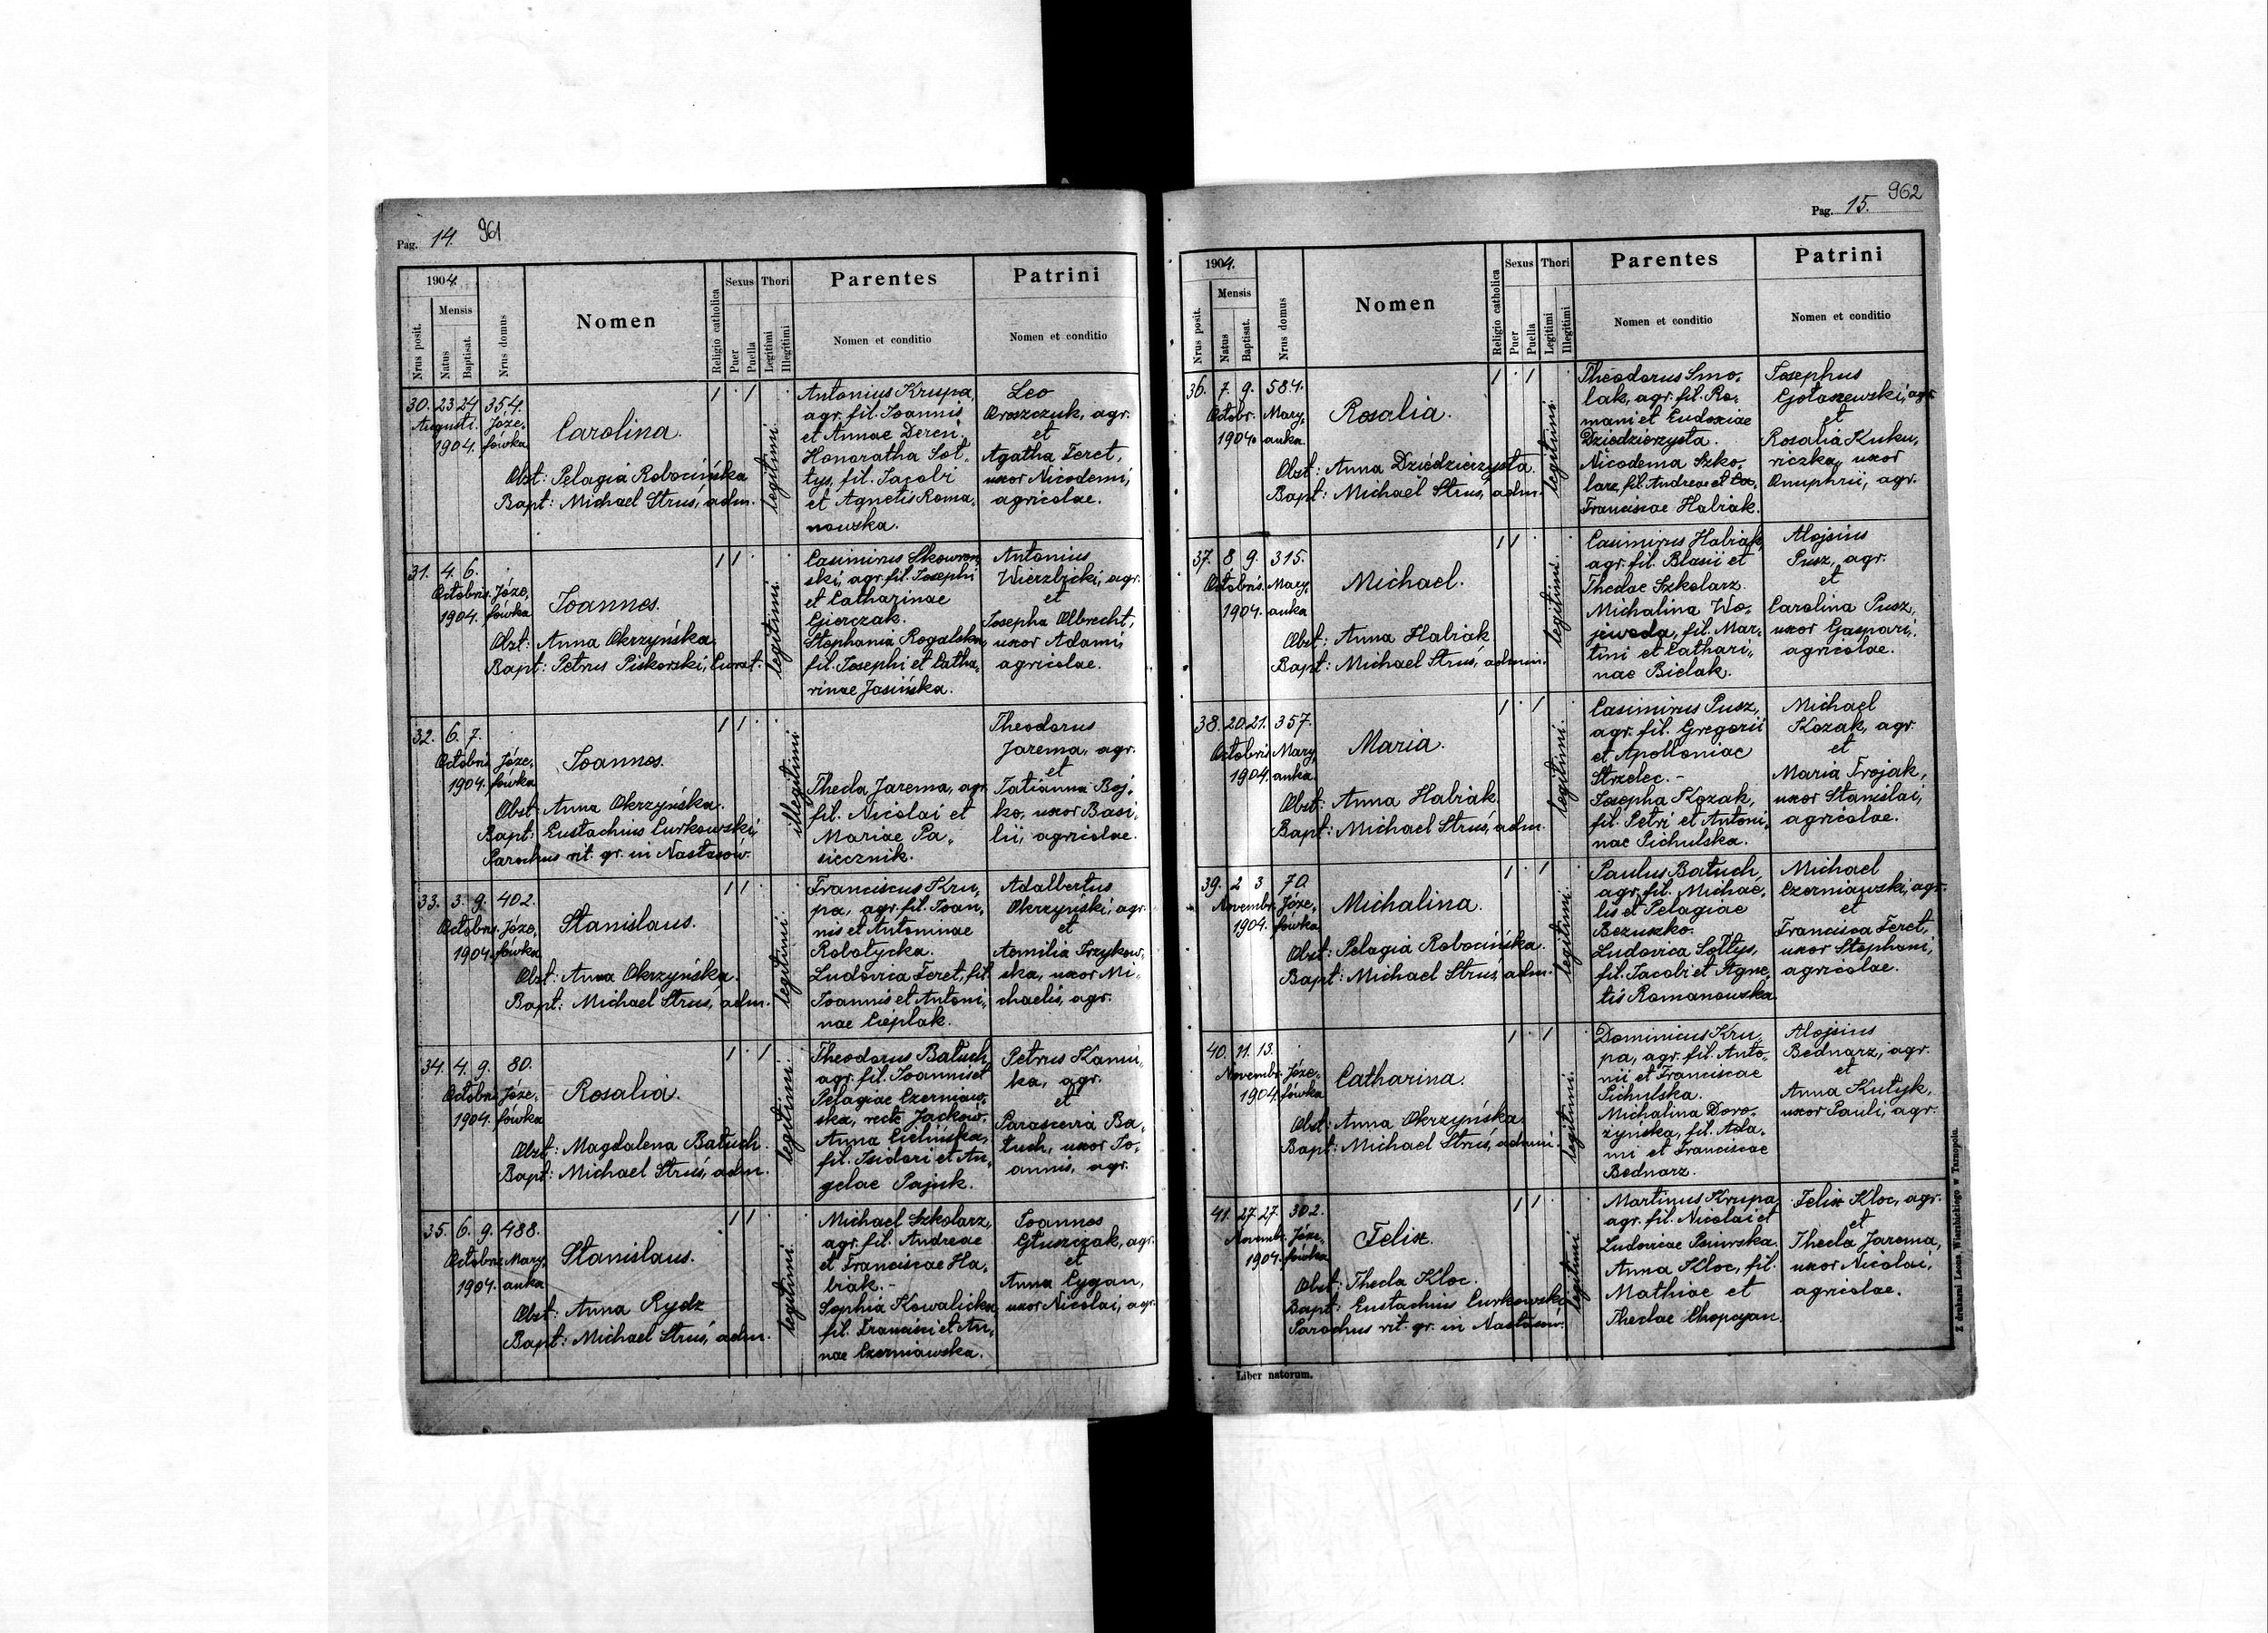 Pag. 14. 961
1904.
Mensis
Nrus posit.
Natus
Baptisat.
Nrus domus
Nomen
Religio catholica
Sexus
Puer
Puella
Thori
Legitimi
Illegitimi
Parentes
Nomen et conditio
Patrini
Nomen et conditio
30. 23 24 354.
Augusti. Józe,
1904. fówka
Carolina.
Obst: Pelagia Robocińska
Bapt: Michael Strus, adm.
1 . 1 .
legitimi.
Antonius Krupa,
agr. fil. Joannis
et Annae Dereń.
Honoratha Soł-
tys, fil. Jacobi
et Agnetis Roma,
nowska.
Leo
Oroszczuk, agr.
et
Agatha Feret,
uxor Nicodemi,
agricolae.
31. 4. 6.
Octobris. Józe,
1904. fówka
Joannes.
Obst: Anna Okrzyńska.
Bapt: Petrus Piskorski, Curat.
1 1 . .
legitimi.
Casimirus Skowron
ski, agr. fil. Josephi
et Catharinae
Gierczak.
Stephania Rogalska,
fil. Josephi et Catha,
rinae Jasińska.
Antonius
Wierzbicki, agr.
et
Josepha Olbrecht,
uxor Adami,
agricolae.
32. 6. 7.
Octobris Józe,
1904. fówka
Joannes.
Obst: Anna Okrzyńska.
Bapt: Eustachius Curkowski,
Parochus rit. gr. in Nastasów.
1 1 .
illegitimi
Thecla Jarema, agr.
fil. Nicolai et
Mariae Pa,
siecznik.
Theodorus
Jarema, agr.
et
Tatianna Boj,
ko, uxor Basi,
lii, agricolae.
33. 3. 9. 402.
Octobris. Józe,
1904. fówka
Stanislaus.
Obst: Anna Okrzyńska.
Bapt: Michael Strus, adm.
1 1 . .
legitimi
Franciscus Kru,
pa, agr. fil. Joan,
nis et Antoninae
Robotycka.
Ludovica Feret, fil.
Joannis et Antoni,
nae Cieplak.
Adalbertus
Okrzyński, agr.
et
Aemilia Trzykow,
ska, uxor Mi,
chaelis, agr.
34. 4. 9. 80.
Octobris Józe,
1904. fówka
Rosalia.
Obst: Magdalena Batuch.
Bapt: Michael Strus, adm.
1 . 1 .
legitimi.
Theodorus Batuch,
agr. fil. Joannis et
Pelagiae Czerniaw,
ska, recte Jackow.
Anna Cielińska,
fil. Isidori et An,
gelae Pajuk.
Petrus Kanni,
ka, agr.
et
Parascevia Ba,
tuch, uxor Jo,
annis, agr.
35. 6. 9. 488.
Octobris Mary,
1904. anka
Stanislaus.
Obst: Anna Rydz
Bapt: Michael Strus, adm.
1 1 . .
legitimi.
Michael Szkolarz,
agr. fil. Andreae
et Franciscae Ha,
biak. -
Sophia Kowalicka,
fil. Francisci et An,
nae Czerniawska.
Joannes
Głuszczak, agr.
et
Anna Cygan,
uxor Nicolai, agr.
Pag. 15. 962
1904.
Mensis
Nrus posit.
Natus
Baptisat.
Nrus domus
Nomen
Religio catholica
Sexus
Puer
Puella
Thori
Legitimi
Illegitimi
Parentes
Nomen et conditio
Patrini
Nomen et conditio
36. 7. 9. 584.
Octobr. Mary,
1904. anka.
Rosalia.
Obst: Anna Dziedzierzysta.
Bapt: Michael Strus, adm.
1 . 1
legitimi.
Theodorus Smo,
lak, agr. fil. Ro,
mani et Eudoxiae
Dziedzierzysta.
Nicodema Szko,
larz, fil. Andreae et
Franciscae Habiak.
Josephus
Gołaszewski, agr.
et
Rosalia Kuku,
riczka, uxor
Onuphrii, agr.
37. 8. 9. 315.
Octobris. Mary,
1904. anka
Michael.
Obst: Anna Habiak
Bapt: Michael Strus, admin.
1 1 .
legitimi.
Casimirus Habiak,
agr. fil. Blasii et
Theclae Szkolarz.
Michalina Wo,
jewoda, fil. Mar,
tini et Cathari,
nae Bielak.
Alojsius
Pusz, agr.
et
Carolina Pusz,
uxor Gaspari,
agricolae.
38. 20. 21. 357.
Octobris Mary,
1904. anka.
Maria.
Obst: Anna Habiak.
Bapt: Michael Strus, adm.
1 . 1
legitimi.
Casimirus Pusz,
agr. fil. Gregorii
et Apolloniae
Strzelec. -
Josepha Kozak,
fil. Petri et Antoni,
nae Pichulska.
Michael
Kozak, agr.
et
Maria Trojak,
uxor Stanislai,
agricolae.
39. 2 3 70.
Novembr. Józe,
1904. fówka
Michalina.
Obst: Pelagia Robocińska.
Bapt: Michael Strus, adm.
1 . 1
legitimi.
Paulus Batuch,
agr. fil. Michae,
lis et Pelagiae
Bezuszko.
Ludovica Sołtys,
fil. Jacobi et Agne,
tis Romanowska.
Michael
Czerniawski, agr.
et
Francisca Feret,
uxor Stephani,
agricolae.
40. 11. 13.
Novembr. Józe,
1904. fówka
Catharina.
Obst: Anna Okrzyńska.
Bapt: Michael Strus, admin.
1 . 1 .
legitimi.
Dominicus Kru,
pa, agr. fil. Anto,
nii et Franciscae
Pichulska.
Michalina Doro,
żyńska, fil. Ada,
mi et Franciscae
Bednarz.
Alojsius
Bednarz, agr.
et
Anna Kułyk,
uxor Pauli, agr.
41. 27. 27. 302.
Novembr. Józe,
1904. fówka
Felix.
Obst: Thecla Kloc.
Bapt: Eustachius Curkowski,
Parochus rit. gr. in Nastasow.
1 1 .
legitimi
Martinus Krupa,
agr. fil. Nicolai et
Ludovicae Psiurska.
Anna Kloc, fil.
Mathiae et
Theclae Chopcyan.
Felix Kloc, agr.
et
Thecla Jarema,
uxor Nicolai,
agricolae.
Liber natorum.
Z drukarni Leona Wierzbickiego w Tarnopolu.